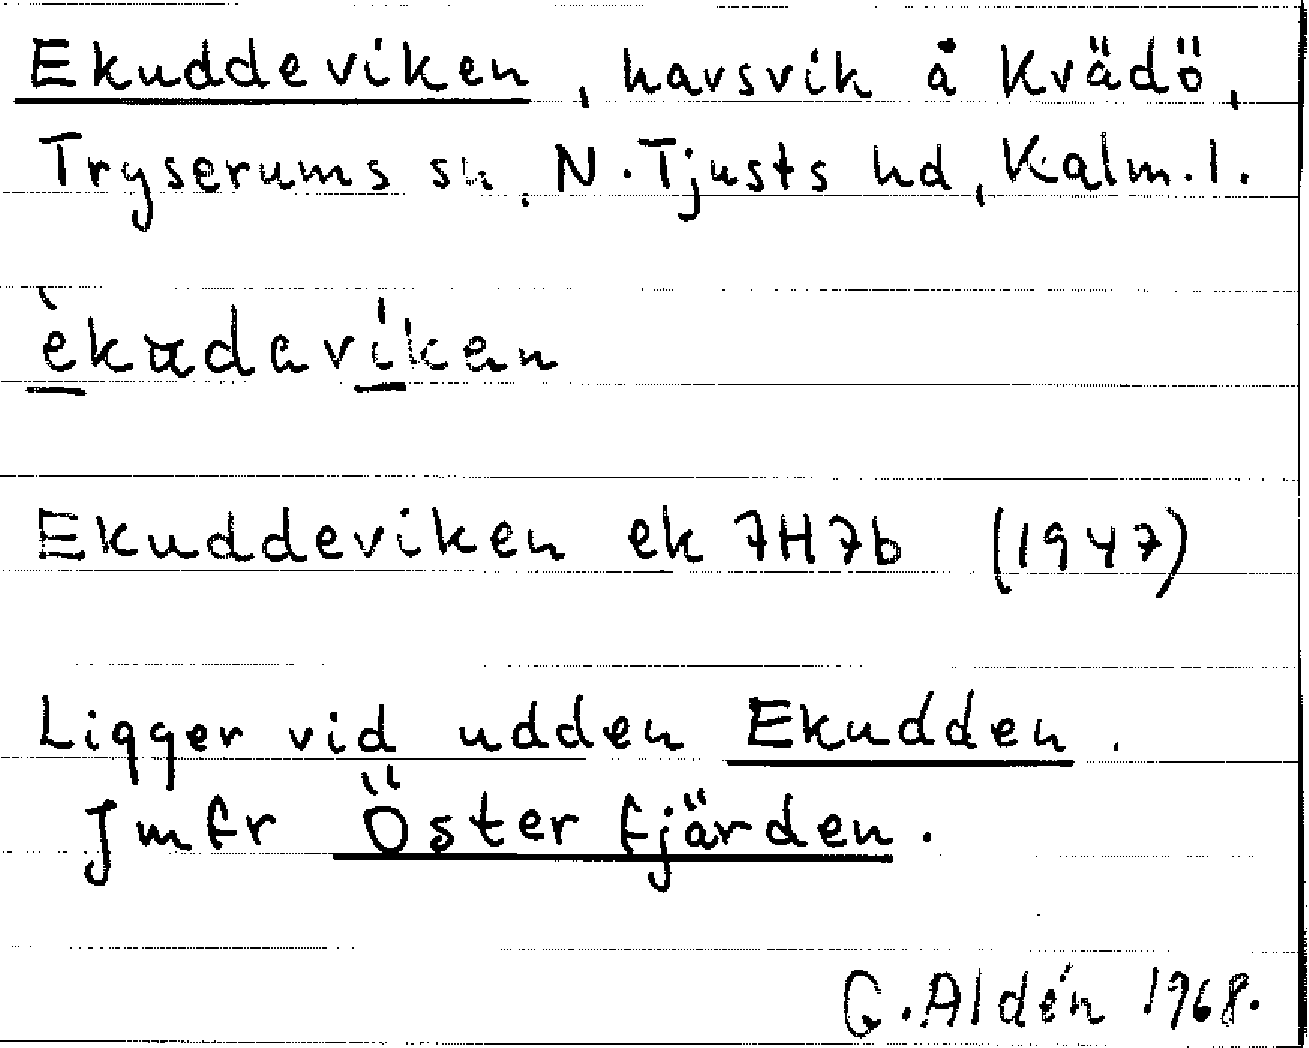 Ekuddeviken, havsvik å Kvädö,
Tryserums sn, N. Tjusts hd, Kalm. l.
Ekuddeviken ek 7H7b (1947)
Ligger vid udden Ekudden.
Jmfr Österfjärden.
G. Aldén 1968.